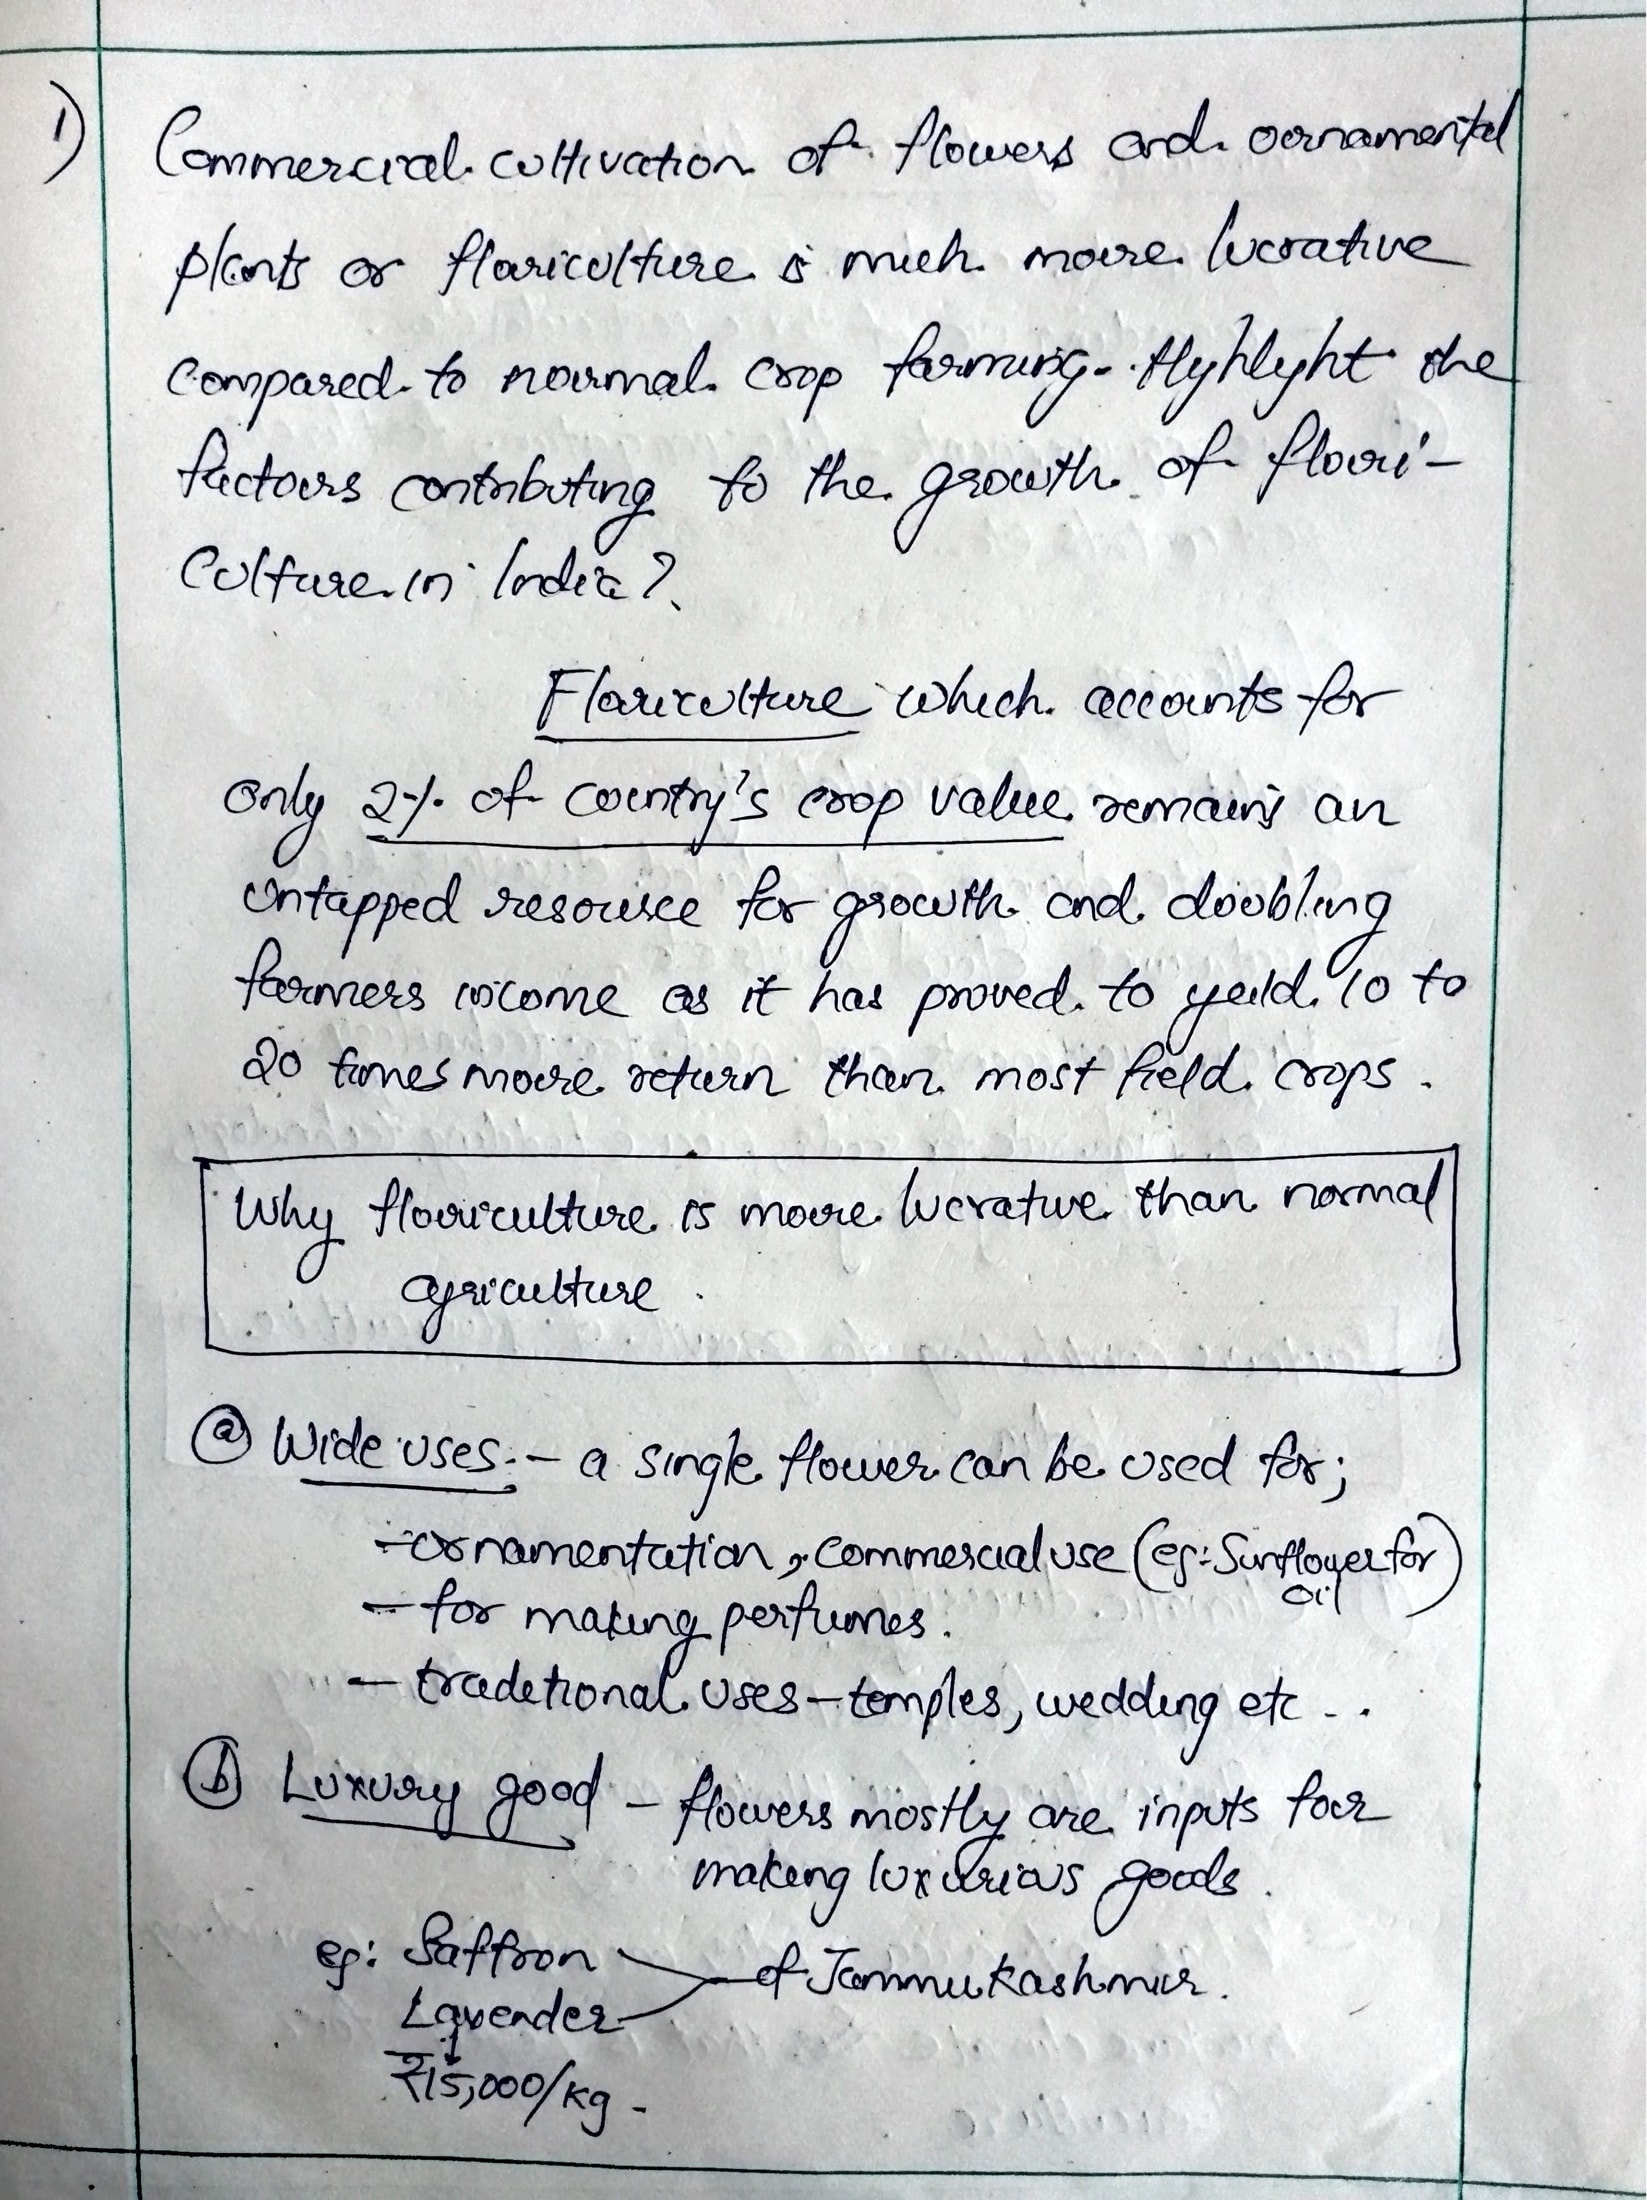 1) Commercial cultivation of flowers and ornamental
plants or floriculture is much more lucrative
compared to normal crop farming. Highlight the
factors contributing to the growth of flori-
culture in India?
Floriculture which accounts for
only 2% of country's crop value remains an
untapped resource for growth and doubling
farmers income as it has proved to yeild 10 to
20 times more return than most field crops.
Why floriculture is more lucrative than normal
agriculture.
(a) Wide uses:- a single flower can be used for;
- ornamentation, commercial use (eg: Sunflower for
oil)
- for making perfumes.
- traditional uses - temples, wedding etc..
(b) Luxury good - flowers mostly are inputs for
making luxurious goods.
eg: Saffron
Lavender
of Jammu Kashmir.
₹15,000/kg.